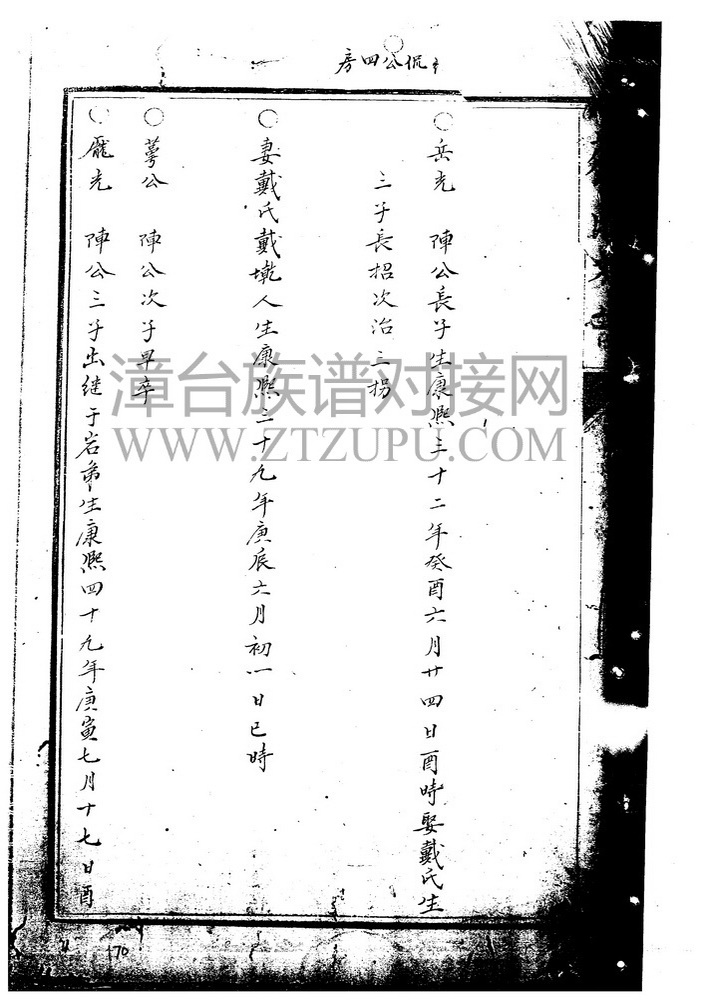 侃公四房
○岳光 陣公長子生康熙三十二年癸酉六月廿四日酉時娶戴氏生
三子長招次治三拐
○妻戴氏戴墘人生康熙三十九年庚辰六月初一日巳時
○蕚公 陣公次子早卒
○龐光 陣公三子出继于岩弟生康熙四十九年庚寅七月十七日酉
170
漳台族谱对接网
WWW.ZTZUPU.COM